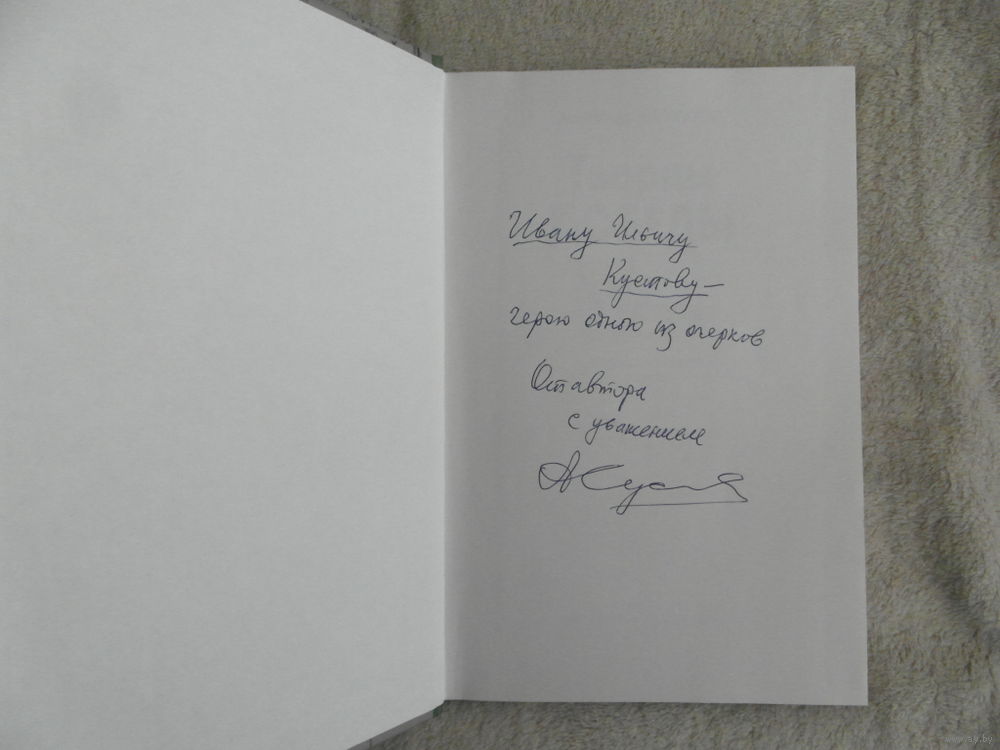 Ивану Ильичу
Кустову —
герою одного из очерков
От автора
с уважением
www.ay.by